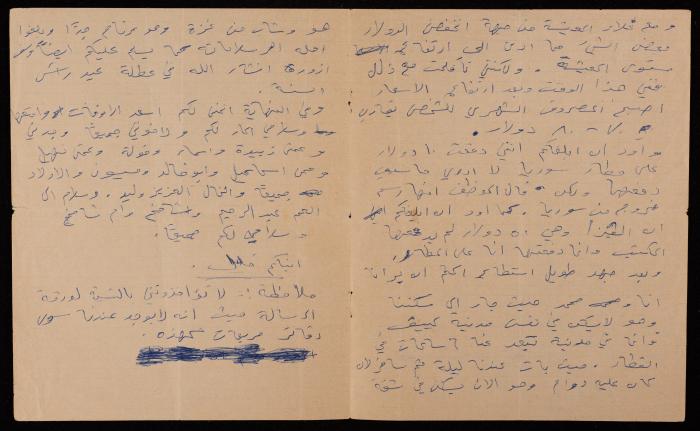 ومع غلاء المعيشة من جهة انخفض الدولار
بعض الشيء مما ادى الى ارتفاع
مستوى المعيشة. ولكنني تأقلمت مع ذلك
ففي هذا الوقت وبعد ارتفاع الاسعار
اصبح المصروف الشهري للشخص تقريباً
٧٠ - ٨٠ دولار.
واود ان ابلغكم انني دفعت ١٠ دولار
على مطار سوريا لا ادري ما سبب
دفعها ولكن قال الموظف انها رسم
خروج من سوريا. كما اود ان ابلغكم
ان الفيزا وهي ٥٠ دولار لم يدفعها
المكتب وانا دفعتها انا على المطار.
وبعد جهد طويل استطاع ان يرانا
انا ومحمد حيث جاء الى سكننا
وهو لا يسكن في نفس مدينة كييف
وانما في مدينة تبعد عنا ٦ ساعات في
القطار. حيث بات عندنا ليلة ثم سافر لان
كان عليه دوام وهو الآن يسكن في شقة
هو وشاب من غزة وهو مرتاح جداً وبلغوا
اهله احر سلاماته كما يسلم عليكم ايضاً
ازوره انشاء الله في عطلة عيد رأس
السنة.
وفي النهاية اتمنى لكم اسعد الاوقات
وسلامي الحار لكم ولاخوتي جميعاً وجدتي
وعمتي زبيدة واسماء وخولة وعمتي نهيل
وعمي اسماعيل وابو خالد وميسون والاولاد
جميعاً والخال العزيز وليد. وسلام الى
العم عبد الرحيم وام شامخ
وسلامي لكم جميعاً.
ابنكم
ملاحظة:- لا تؤاخذوني بالنسبة لورقة
الرسالة حيث انه لا يوجد عندنا سوى
دفاتر مربعات كهذه.